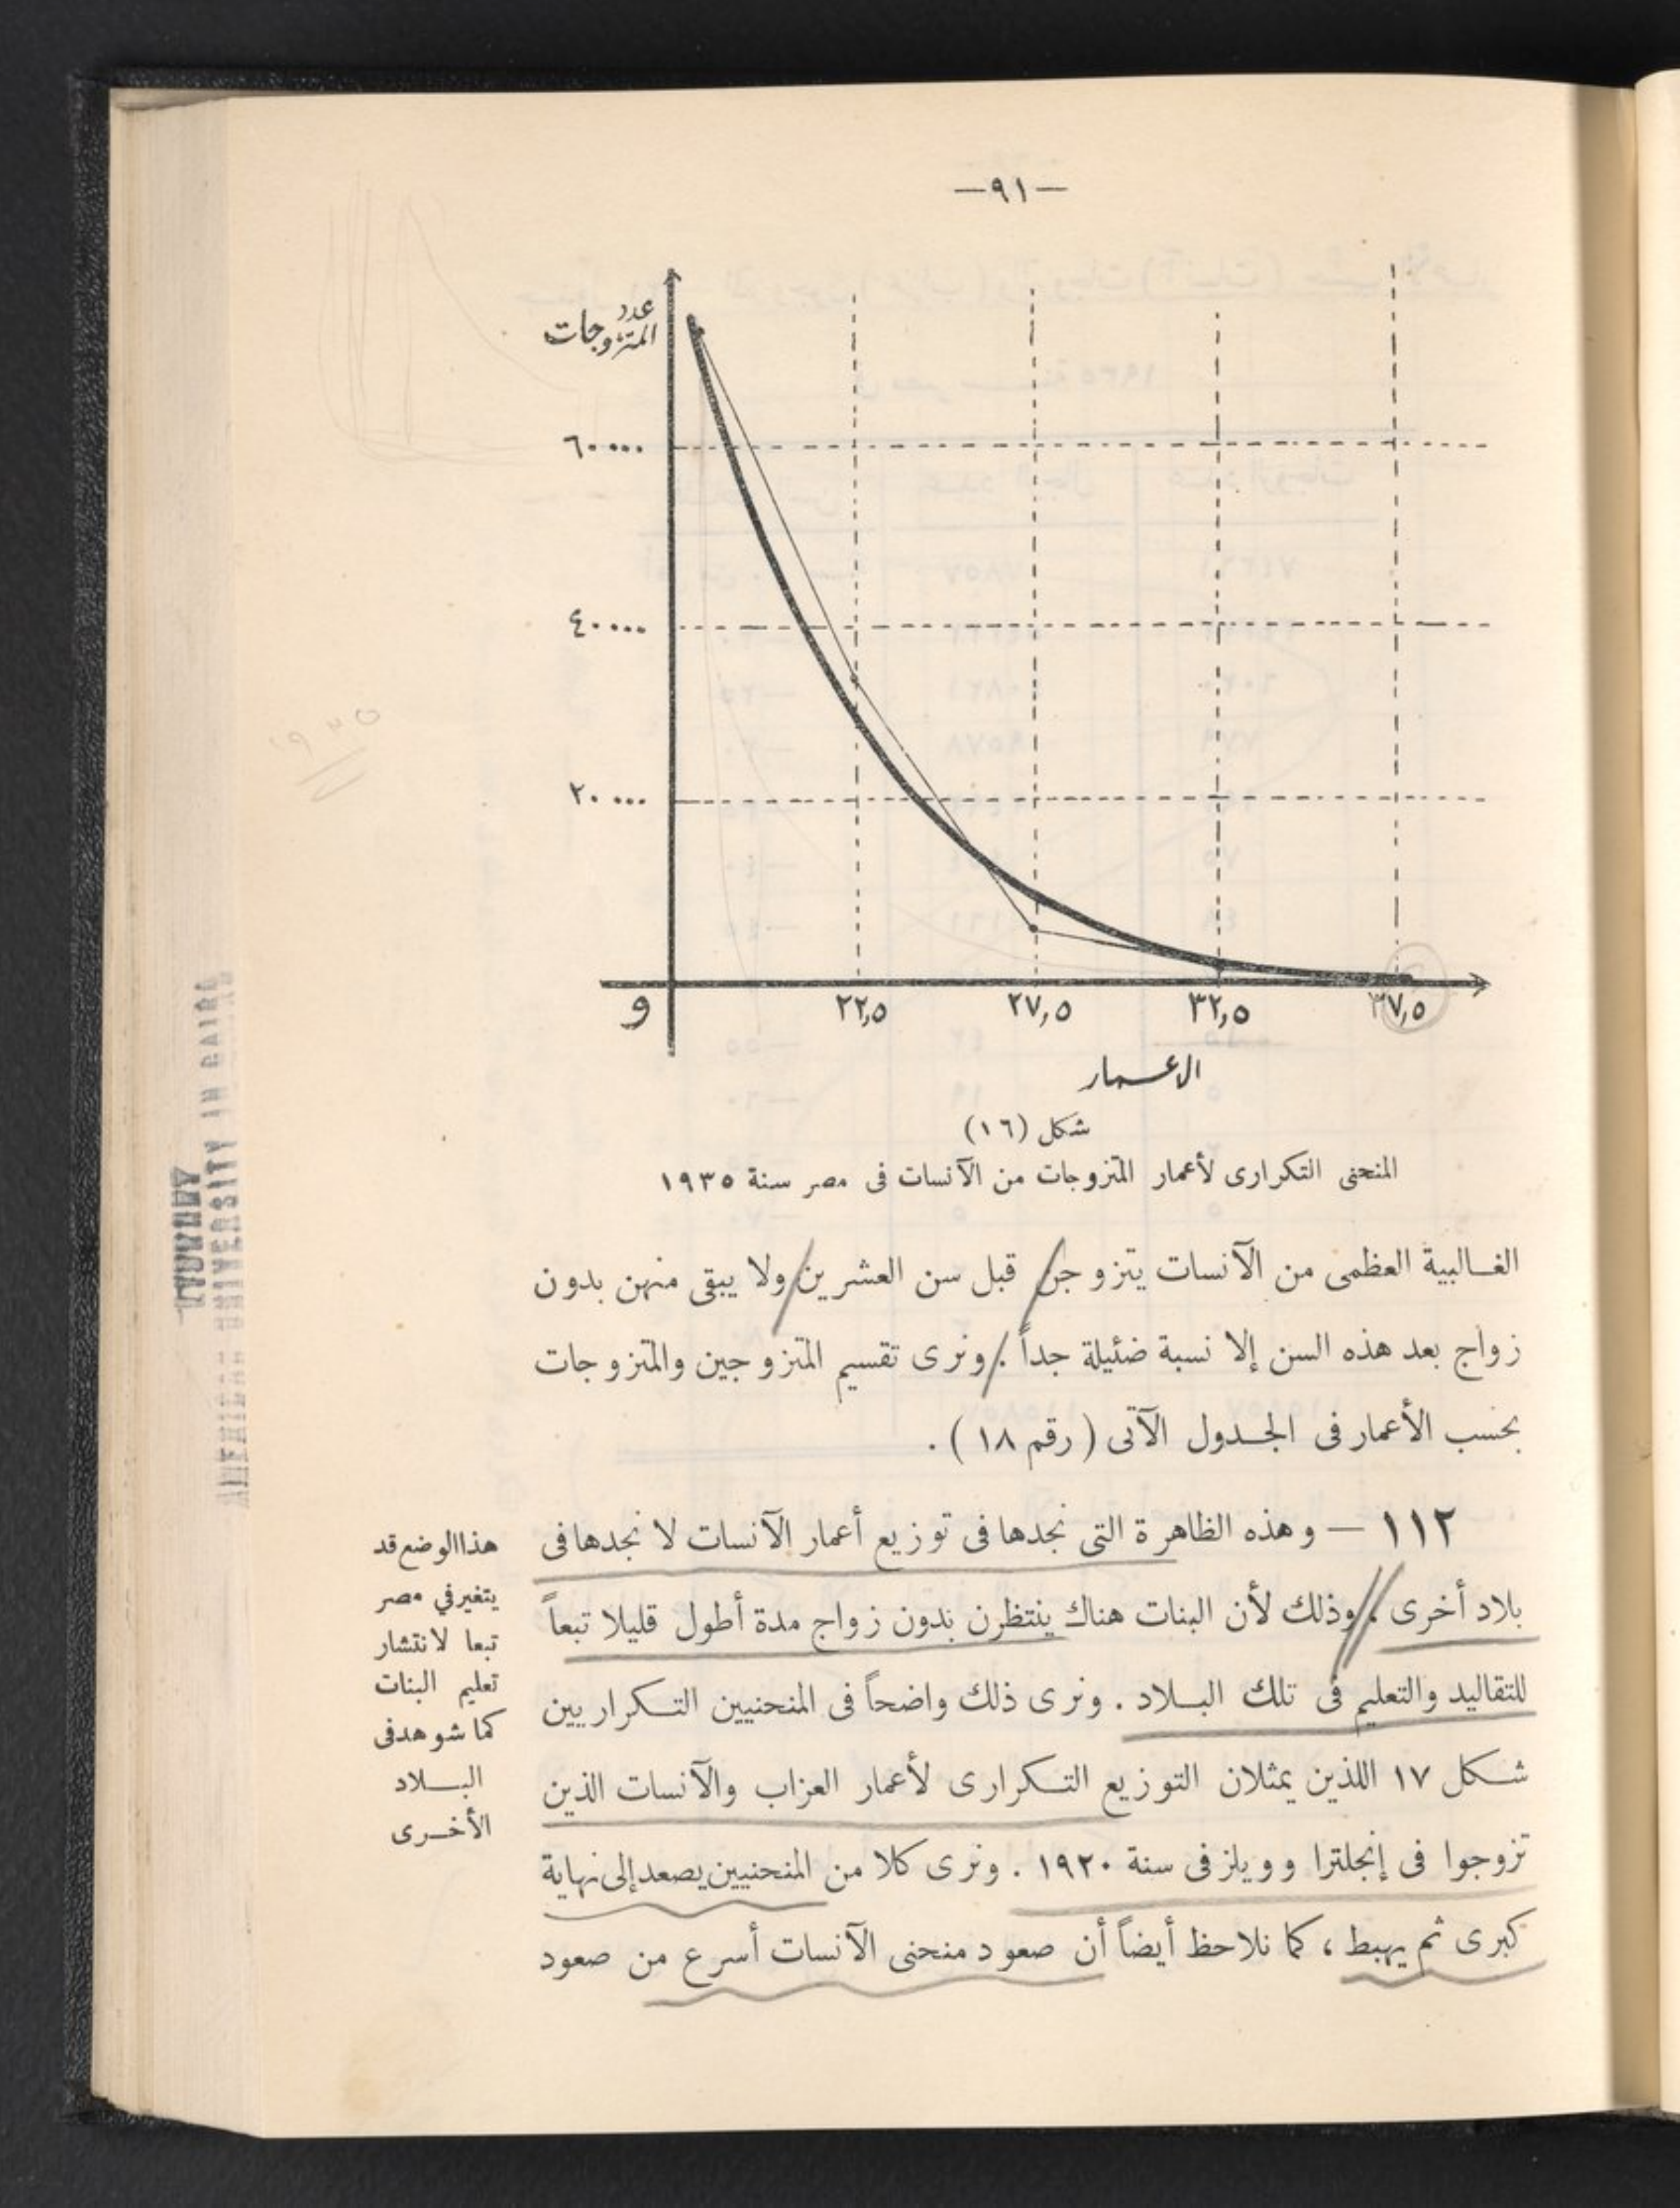 —٩١—
عدد
المتزوجات
٦٠٠٠٠
٤٠٠٠٠
٢٠٠٠٠
و
٢٢,٥
٢٧,٥
٣٢,٥
٣٧,٥
الاعمار
شكل (١٦)
المنحنى التكرارى لأعمار المتزوجات من الآنسات فى مصر سنة ١٩٣٥
الغالبية العظمى من الآنسات يتزوجن قبل سن العشرين ولا يبقى منهن بدون
زواج بعد هذه السن إلا نسبة ضئيلة جداً . ونرى تقسيم المتزوجين والمتزوجات
بحسب الأعمار فى الجدول الآتى ( رقم ١٨ ) .
١١٢ — وهذه الظاهرة التى نجدها فى توزيع أعمار الآنسات لا نجدها فى
بلاد أخرى ، وذلك لأن البنات هناك ينتظرن بدون زواج مدة أطول قليلا تبعاً
للتقاليد والتعليم فى تلك البلاد . ونرى ذلك واضحاً فى المنحنيين التكراريين
شكل ١٧ اللذين يمثلان التوزيع التكرارى لأعمار العزاب والآنسات الذين
تزوجوا فى إنجلترا وويلز فى سنة ١٩٢٠ . ونرى كلا من المنحنيين يصعد إلى نهاية
كبرى ثم يهبط ، كما نلاحظ أيضاً أن صعود منحنى الآنسات أسرع من صعود
هذا الوضع قد
يتغير في مصر
تبعا لانتشار
تعليم البنات
كما شوهد فى
البلاد
الأخرى